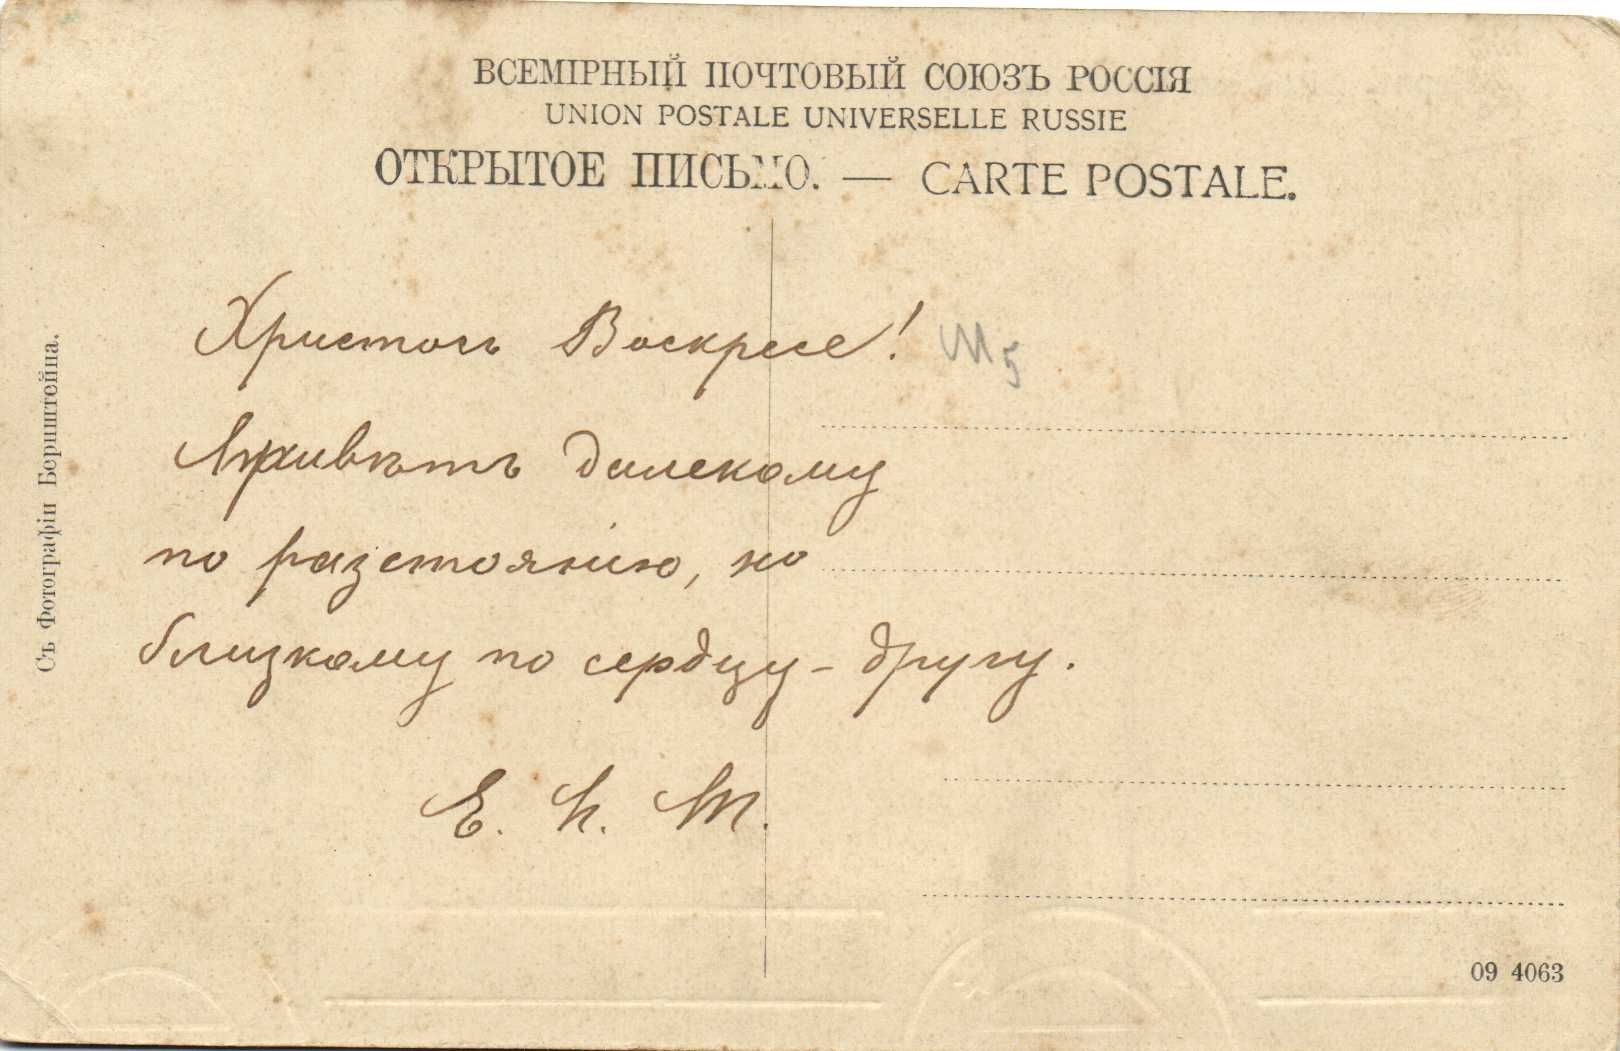 ВСЕМІРНЫЙ ПОЧТОВЫЙ СОЮЗЪ РОССІЯ
UNION POSTALE UNIVERSELLE RUSSIE
ОТКРЫТОЕ ПИСЬМО. — CARTE POSTALE.
Христосъ Воскресе!
Привѣтъ далекому
по разстоянію, но
близкому по сердцу – другу.
Е. П. Т.
Съ Фотографіи Бернштейна.
09 4063